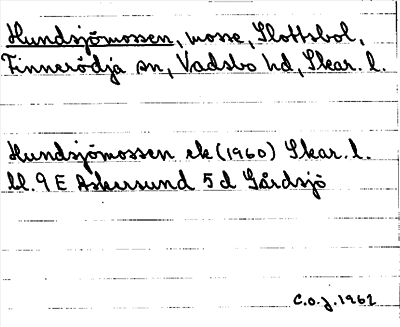 Hundsjömossen, mosse, Slottsbol,
Finnerödja sn, Vadsbo hd, Skar. l.
Hundsjömossen ek (1960) Skar. l.
bl. 9 E Askersund 5 d Gårdsjö
C.O.J. 1962